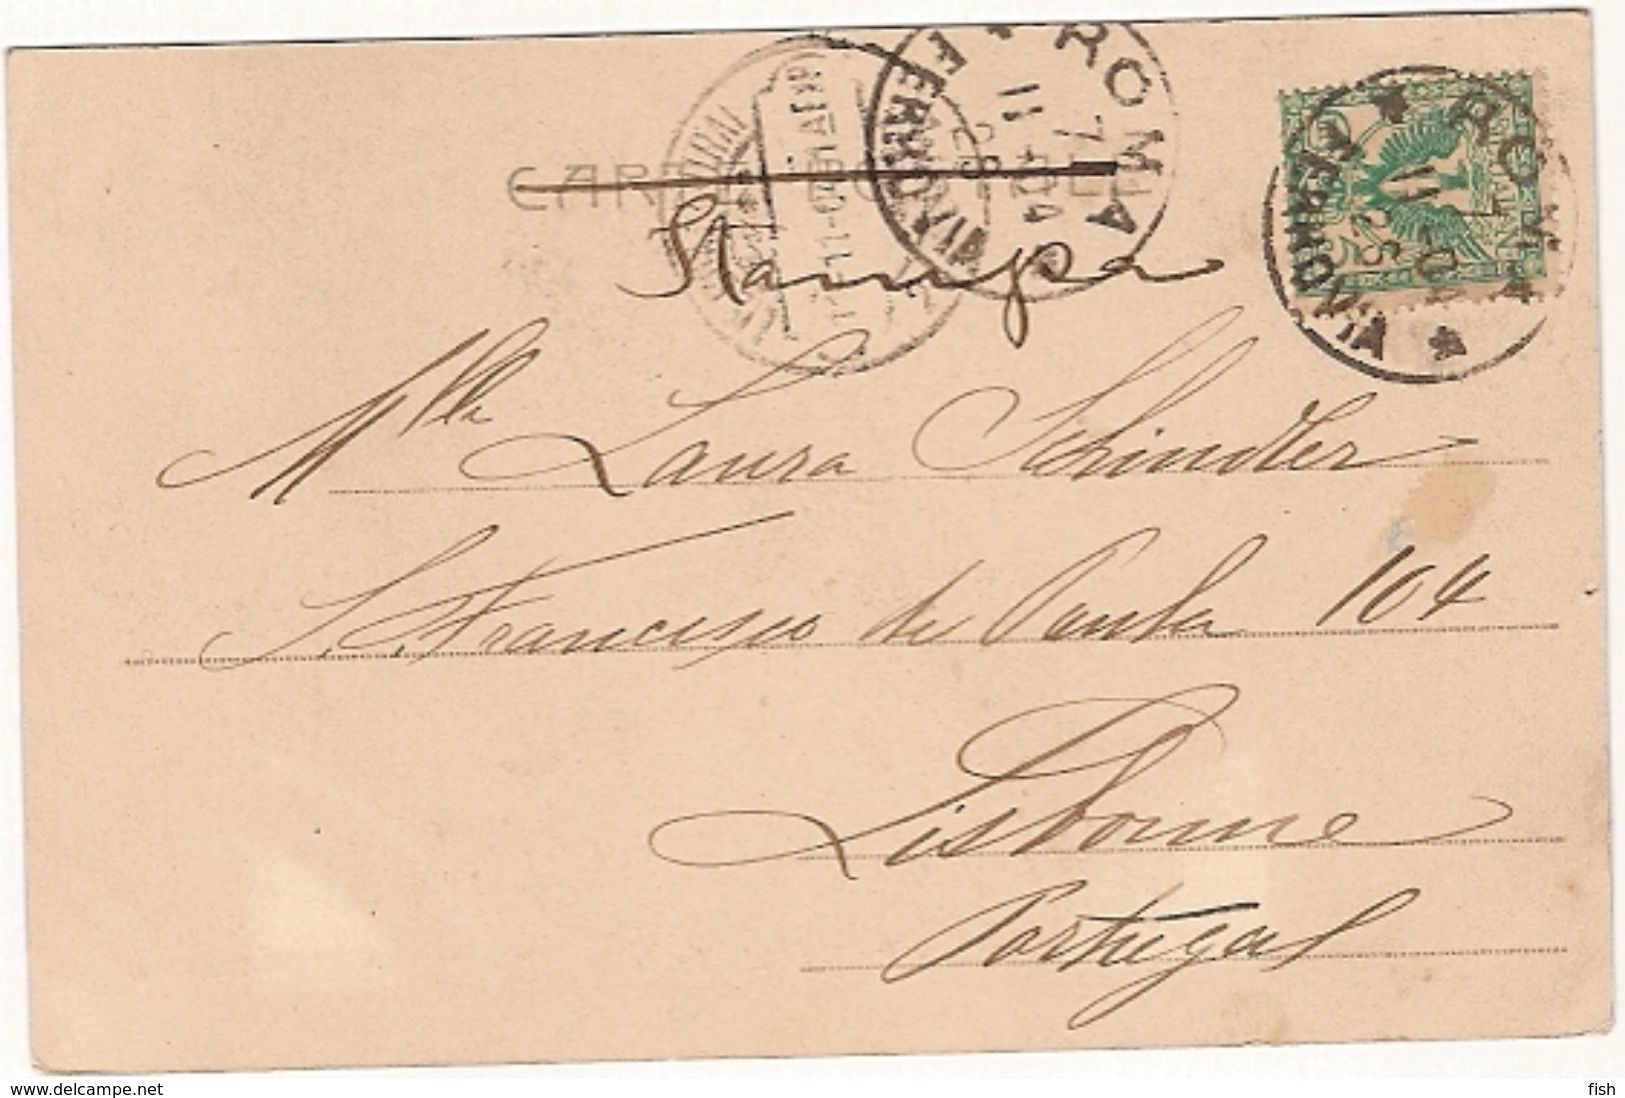 ROMA
FERROVIA
7
11-04
ROMA
FERROVIA
7
11-04
2S
Stampa
Mlle Laura Schindler
S. Francisco de Paula 104
Lisbonne
Portugal
www.delcampe.net
fish